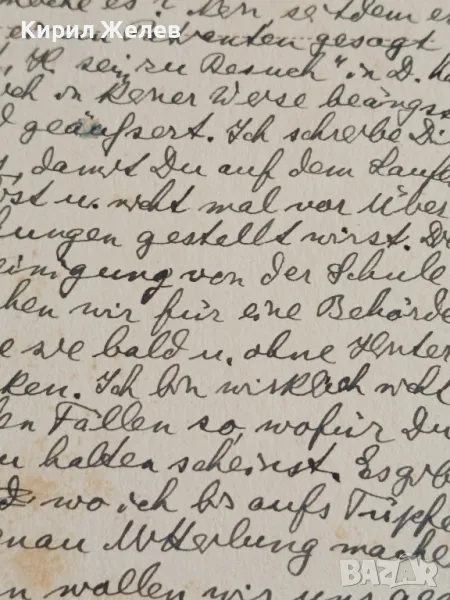 Кирил Желев
seitdem
Patienten gesagt
H. sei zu Besuch" in D.
in keiner Weise
geäußert. Ich schreibe
damit Du auf dem
u. nicht mal vor Über
lungen gestellt wirst.
einigung von der Schule
wir für eine Behörde
bald u. ohne
ken. Ich bin wirklich nicht
Fällen so, wofür Du
halten scheinst. Es
wo ich bis aufs Tüpfe
enau Mitteilung mache
wollen wir uns
bazar